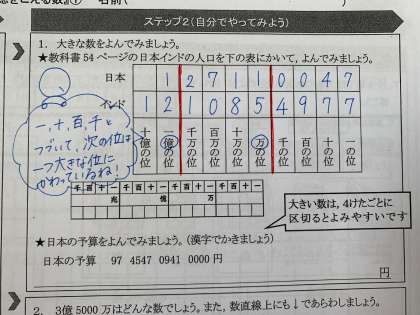 ステップ2(自分でやってみよう)
1. 大きな数をよんでみましょう。
★教科書54ページの日本インドの人口を下の表にかいて,よんでみましょう。
日本 1 2 7 1 1 0 0 4 7
インド 1 2 1 0 8 5 4 9 7 7
十億の位 億の位 千万の位 百万の位 十万の位 万の位 千の位 百の位 十の位 一の位
一,十,百,千と
つづいて,次の位は
一つ大きな位に
かわっているね!
千 百 十 一 千 百 十 一 千 百 十 一 千 百 十 一
兆 億 万
大きい数は,4けたごとに
区切るとよみやすいです
★日本の予算をよんでみましょう。(漢字でかきましょう)
日本の予算 97 4547 0941 0000 円
円
2. 3億5000万はどんな数でしょう。また,数直線上にも↓であらわしましょう。